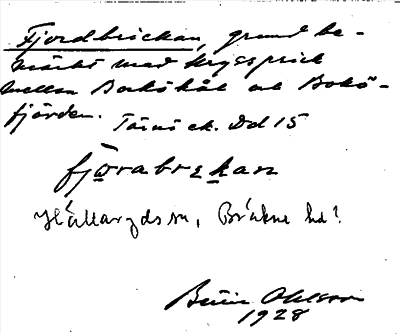 Fjordbrickan, grund be-
märkt med kryssprick
mellan Boköhål och Bokö-
fjärden. Tärnö ek. Dd 15
fjorabrekan
Hällaryds sn, Bräkne hd.
Ohlsson
1928